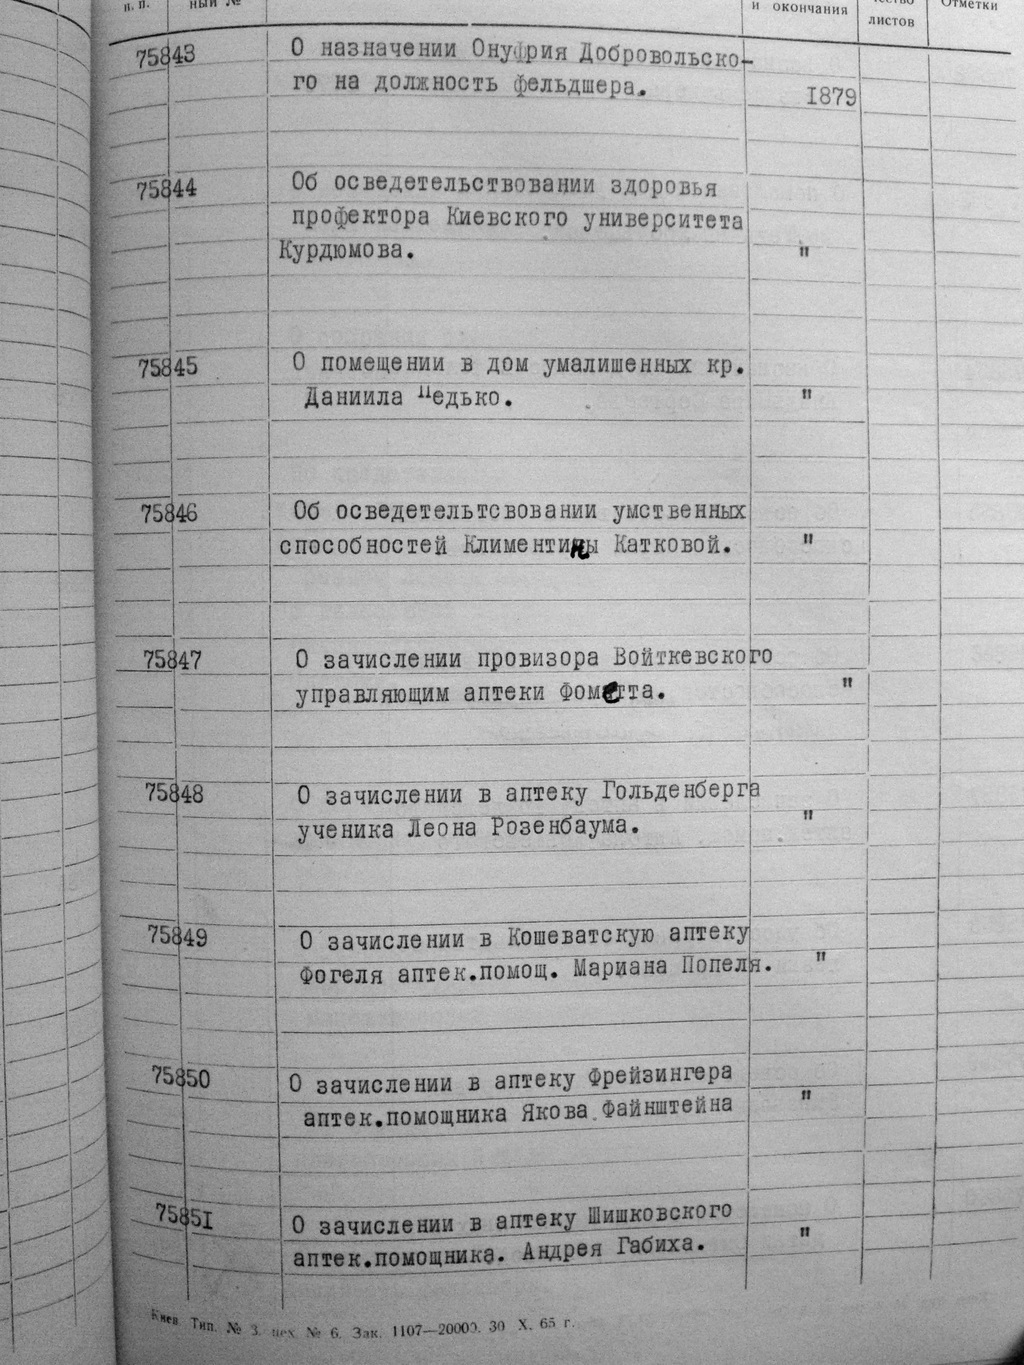 п. п.
ный №
и окончания
листов
Отметки
75843 О назначении Онуфрия Добровольско-
го на должность фельдшера. 1879
75844 Об осведетельствовании здоровья
профектора Киевского университета
Курдюмова. "
75845 О помещении в дом умалишенных кр.
Даниила Цедько. "
75846 Об осведетельтсвовании умственных
способностей Климентины Катковой. "
75847 О зачислении провизора Войткевского
управляющим аптеки Фометта. "
75848 О зачислении в аптеку Гольденберга
ученика Леона Розенбаума. "
75849 О зачислении в Кошеватскую аптеку
Фогеля аптек.помощ. Мариана Попеля. "
75850 О зачислении в аптеку Фрейзингера
аптек.помощника Якова Файнштейна "
75851 О зачислении в аптеку Шишковского
аптек.помощника. Андрея Габиха. "
Киев Тип. № 3. цех № 6. Зак. 1107—20000. 30 X. 65 г.